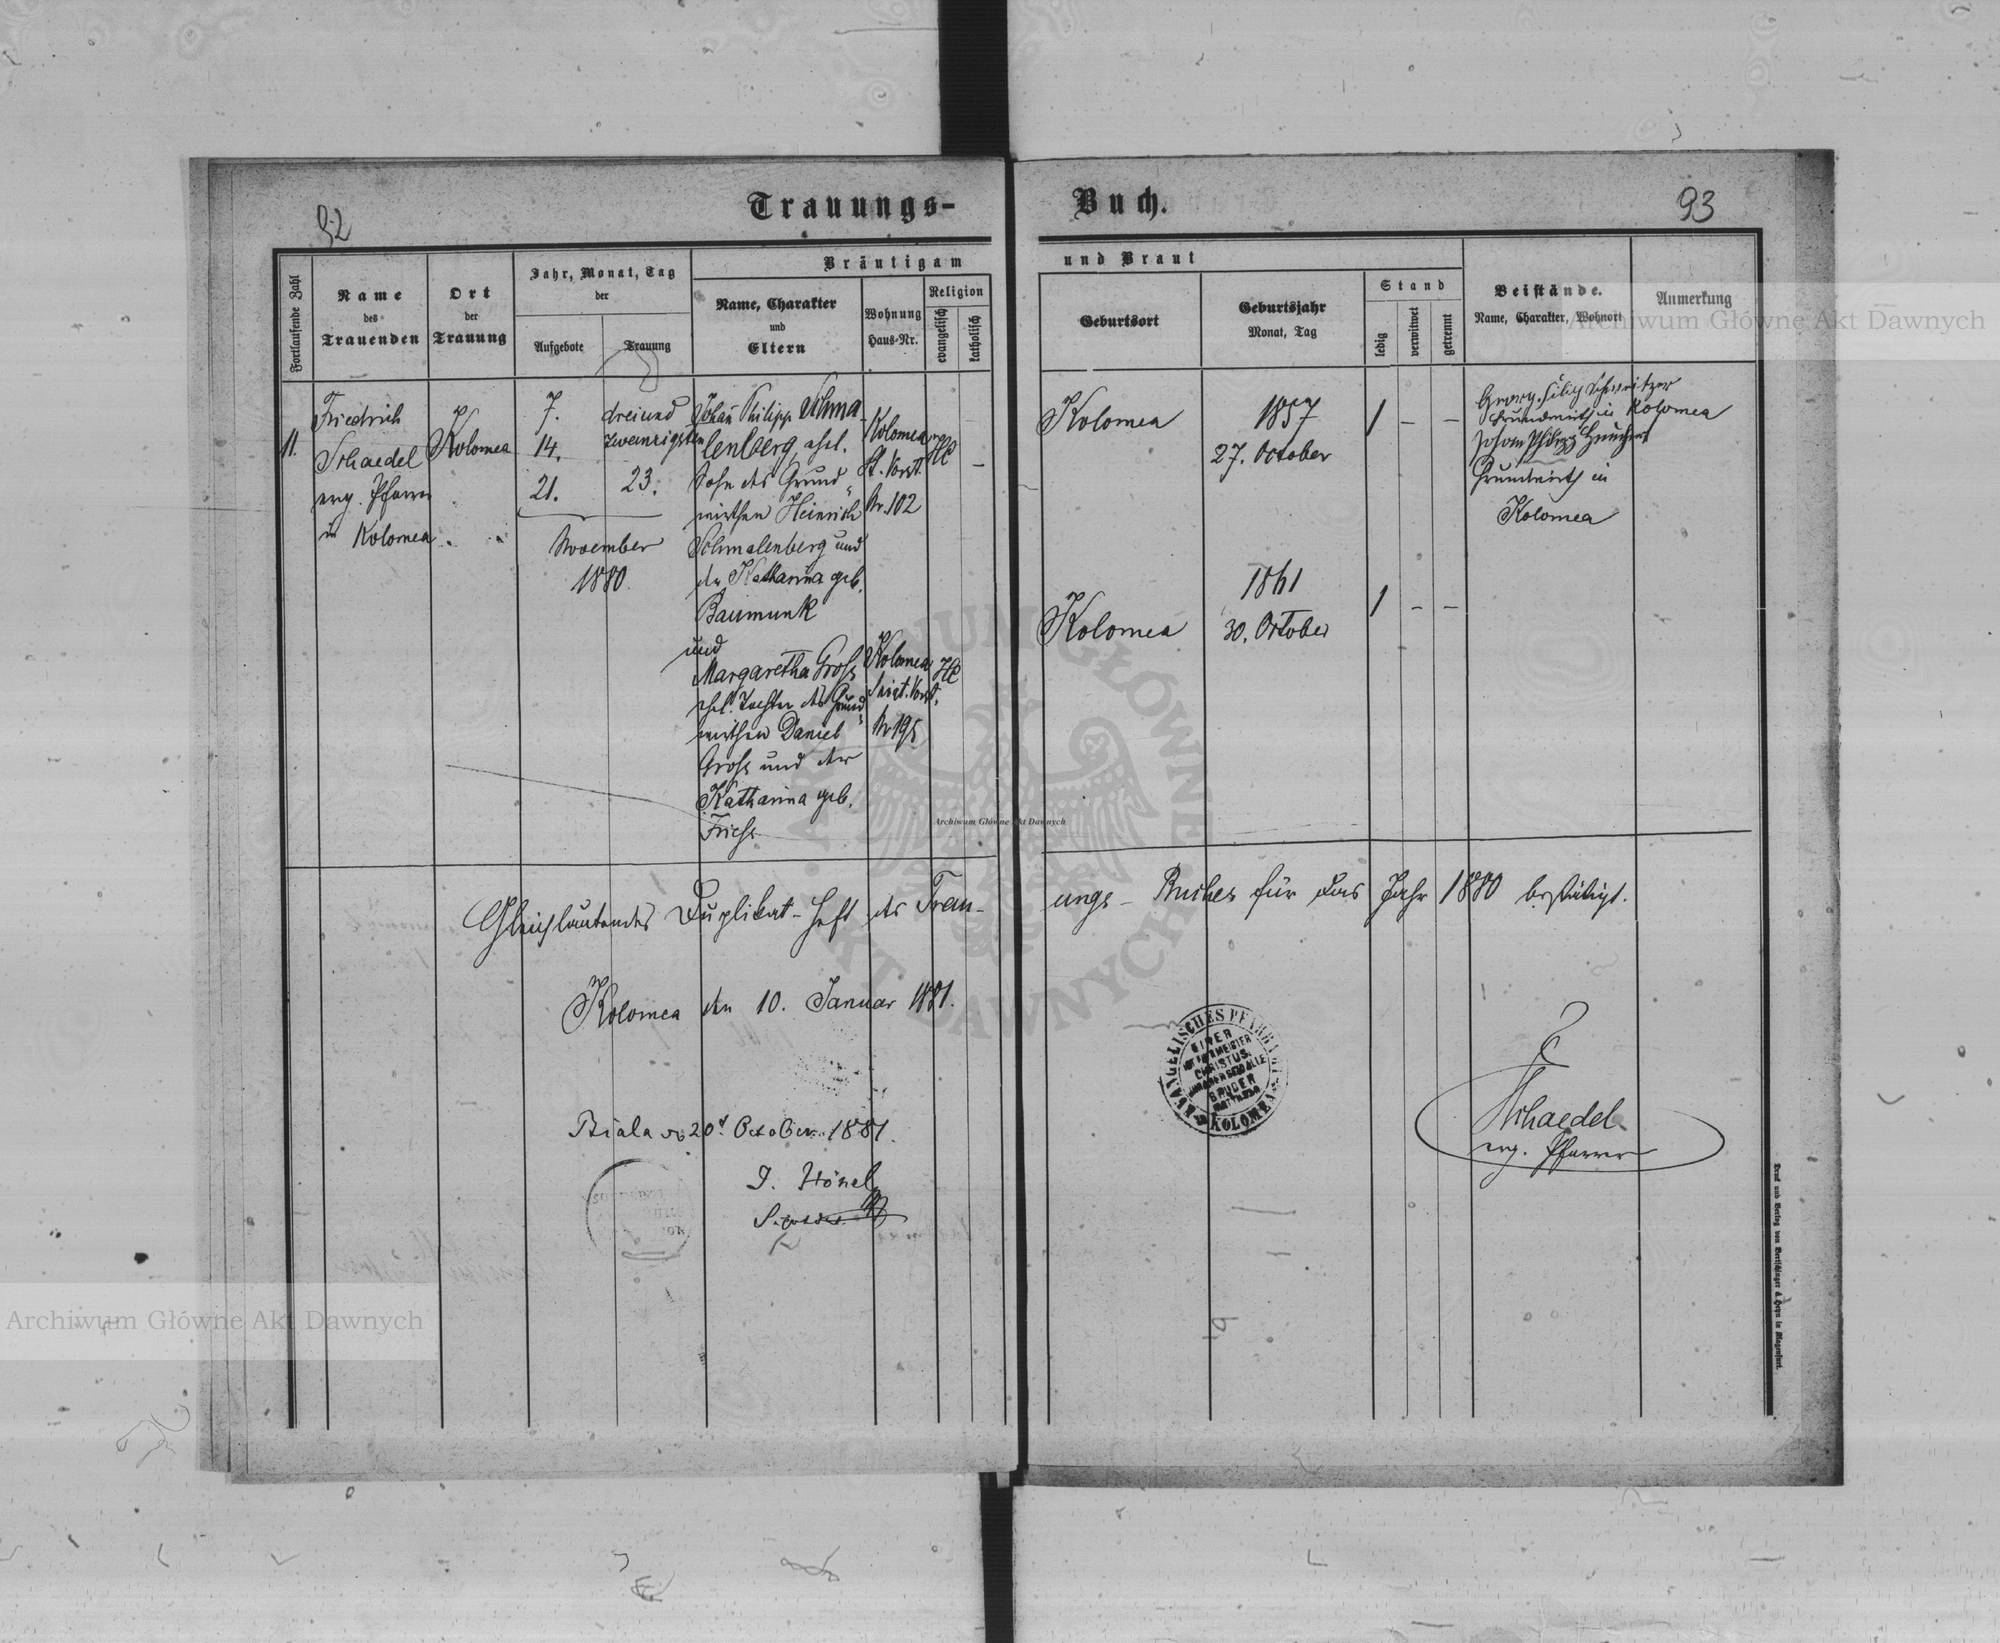 92
Trauungs-
Fortlaufende Zahl
Name
des
Trauenden
Ort
der
Trauung
Jahr, Monat, Tag
der
Aufgebote
Trauung
Bräutigam
Name, Charakter
und
Eltern
Wohnung
Haus-Nr.
Religion
evangelisch
katholisch
11.
Friedrich
Schaedel
evg. Pfarrer
in Kolomea
Kolomea
7.
14.
21.
dreiund
zwanzigsten
23.
November
1880
Johan Philipp Schma-
lenberg, ehel.
Sohn des Grund-
wirthen Heinrich
Schmalenberg und
der Katharina geb.
Baumunk
und
Margaretha Gross
ehel. Tochter des Grund-
wirthen Daniel
Gross und der
Katharina geb.
Kolomea
Vorst.
Nr. 102
HC
–
Kolomea
Vorst.
Nr 195
HC
Gleichlautendes Duplikat-Heft des Trau-
Kolomea den 10. Januar 1881.
Biala 20t October 1881.
J. Hönel
Buch.
93
und Braut
Geburtsort
Geburtsjahr
Monat, Tag
Stand
ledig
verwitwet
getrennt
Beistände.
Name, Charakter, Wohnort
Anmerkung
Kolomea
1857
27. October
1 – –
Georg Schweitzer
Grundwirth in Kolomea
Johan Philipp
Grundwirth in
Kolomea
Kolomea
1861
30. October
1 – –
ungs-Buches für das Jahr 1880 bestätigt.
EVANGELISCHES PFARRAMT
KOLOMEA
EINER
MEISTER
CHRISTUS
BRÜDER
Schaedel
evg. Pfarrer
Druck und Verlag von Bertschinger & Heyn in Klagenfurt.
Archiwum Główne Akt Dawnych
Archiwum Główne Akt Dawnych
Archiwum Główne Akt Dawnych
ARCHIWUM GŁÓWNE AKT DAWNYCH